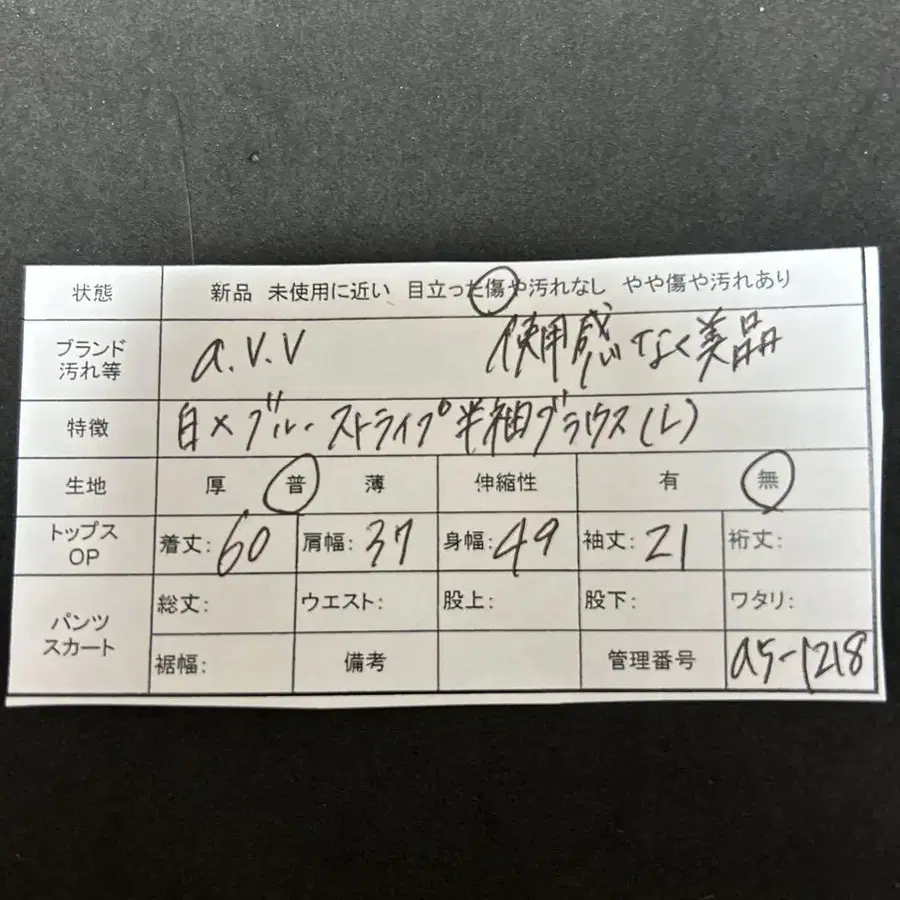 状態 新品 未使用に近い 目立った傷や汚れなし やや傷や汚れあり
ブランド
汚れ等 a.v.v 使用感なく美品
特徴 白×ブルーストライプ半袖ブラウス(L)
生地 厚 普 薄 伸縮性 有 無
トップス
OP 着丈:60 肩幅:37 身幅:49 袖丈:21 裄丈:
パンツ
スカート 総丈: ウエスト: 股上: 股下: ワタリ:
裾幅: 備考 管理番号 a5-1218